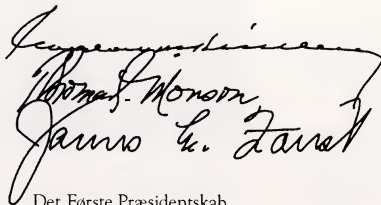 Thomas S. Monson
James E. Faust
Det Første Præsidentskab